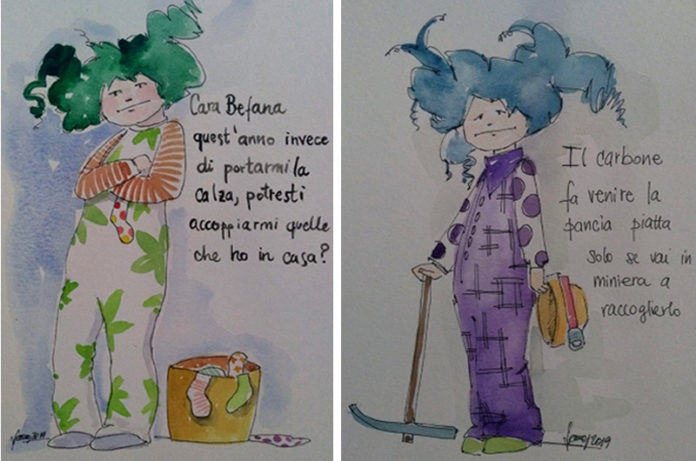 Cara Befana
quest'anno invece
di portarmi la
calza, potresti
accoppiarmi quelle
che ho in casa?
Il carbone
fa venire la
pancia piatta
solo se vai in
miniera a
raccoglierlo
2019